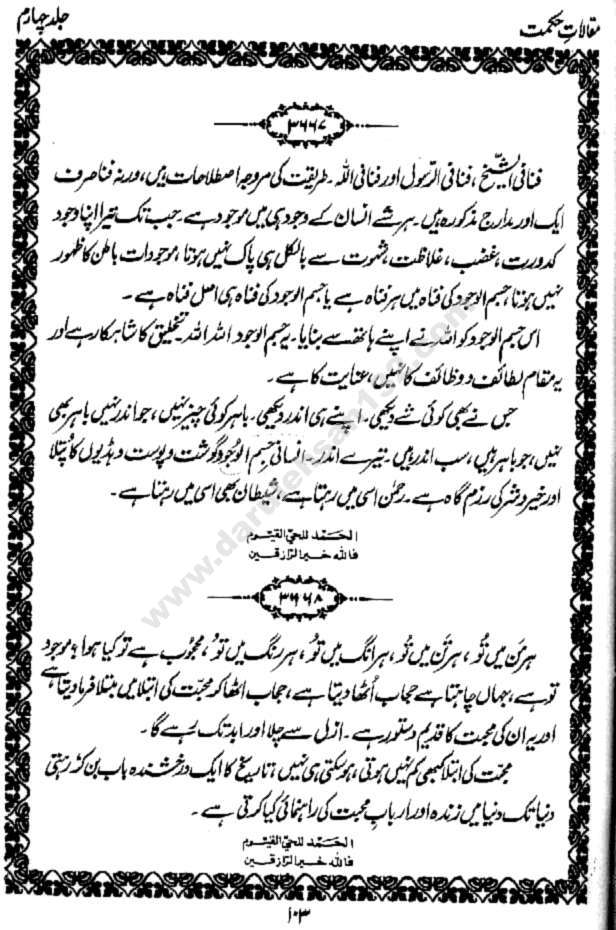 مقالاتِ حکمت
جلد چہارم
۳۶۶۷
فنا فی الشیخ، فنا فی الرسول اور فنا فی اللہ ۔ طریقت کی مروجہ اصطلاحات ہیں، ورنہ فنا صرف
ایک اور مدارج مذکورہ ہیں۔ ہر شے انسان کے وجود ہی میں موجود ہے۔ جب تک تیرا اپنا وجود
کدورت، غضب، غلاظت، شہوت سے بالکل ہی پاک نہیں ہوتا، موجودات باطن کا ظہور
نہیں ہوتا، جسم الوجود کی فناہ میں ہر فناہ ہے یا جسم الوجود کی فناہ ہی اصل فناہ ہے ۔
اس جسم الوجود کو اللہ نے اپنے ہاتھ سے بنایا۔ یہ جسم الوجود اللہ اللہ تخلیق کا شاہکار ہے اور
یہ مقام لطائف و وظائف کا نہیں، عنایت کا ہے ۔
جس نے بھی کوئی شے دیکھی۔ اپنے ہی اندر دیکھی۔ باہر کوئی چیز نہیں، جو اندر نہیں باہر بھی
نہیں، جو باہر ہیں، سب اندر ہیں۔ تیرے اندر۔ انسانی جسم الوجود گوشت و پوست و ہڈیوں کا پُتلا
اور خیر و شر کی رزم گاہ ہے۔ رحمٰن اسی میں رہتا ہے، شیطان بھی اسی میں رہتا ہے۔
الحمد للحی القیوم
فاللہ خیر الرازقین
۳۶۶۸
ہر مَن میں تُو، ہر تن میں تُو، ہر انگ میں تُو، ہر رنگ میں تُو، محجُوب ہے تو کیا ہوا ؛ موجود
تو ہے، جہاں چاہتا ہے حجاب اُٹھا دیتا ہے، حجاب اٹھا کر محبت کی ابتلا میں مبتلا فرما دیتا ہے
اور یہ ان کی محبت کا قدیم دستور ہے۔ ازل سے چلا اور ابد تک رہے گا۔
محبت کی ابتلا کبھی کم نہیں ہوتی، ہو سکتی ہی نہیں، تاریخ کا ایک درخشندہ باب بن کر رہتی
دنیا تک دنیا میں زندہ اور اربابِ محبت کی راہنمائی کیا کرتی ہے۔
الحمد للحی القیوم
فاللہ خیر الرازقین
۱۰۳